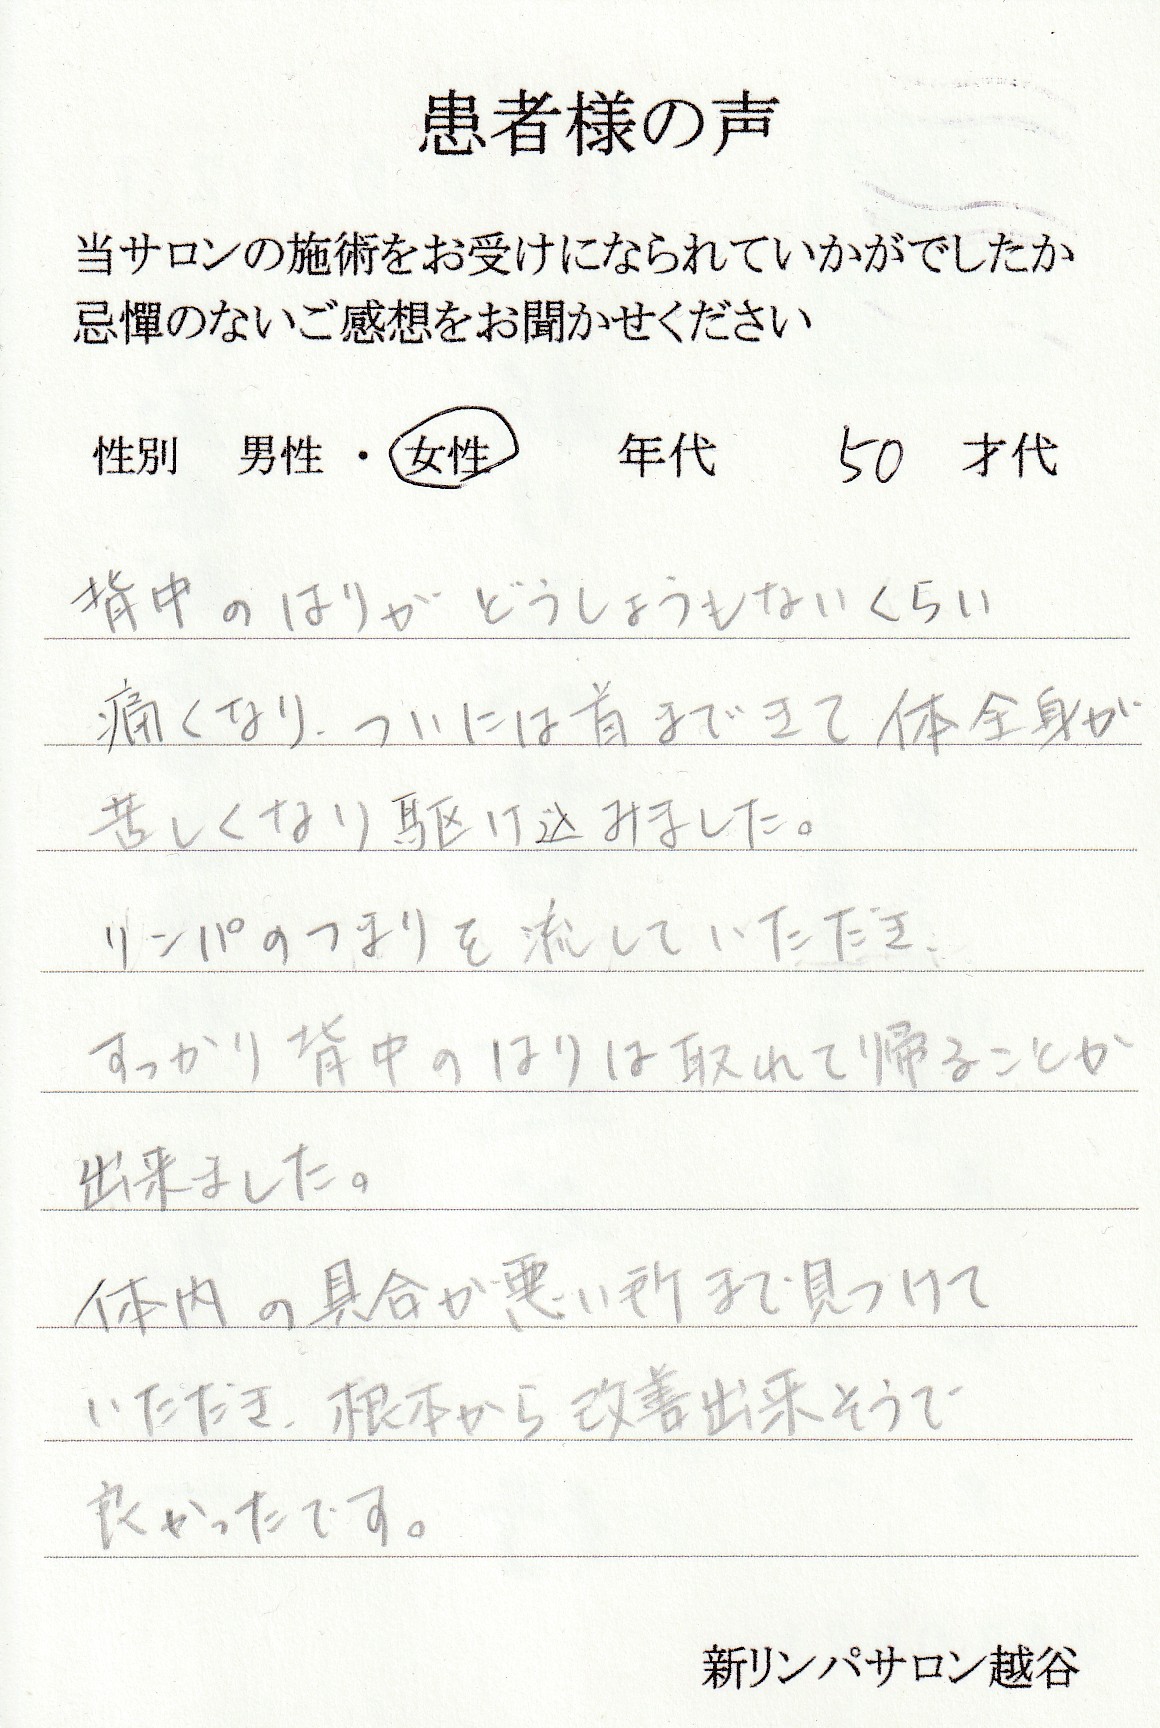 患者様の声
当サロンの施術をお受けになられていかがでしたか
忌憚のないご感想をお聞かせください
性別 男性・女性 年代 50 才代
背中のはりがどうしようもないくらい
痛くなり、ついには首まできて体全身が
苦しくなり駆け込みました。
リンパのつまりを流していただき、
すっかり背中のはりは取れて帰ることが
出来ました。
体内の具合が悪い所まで見つけて
いただき、根本から改善出来そうで
良かったです。
新リンパサロン越谷